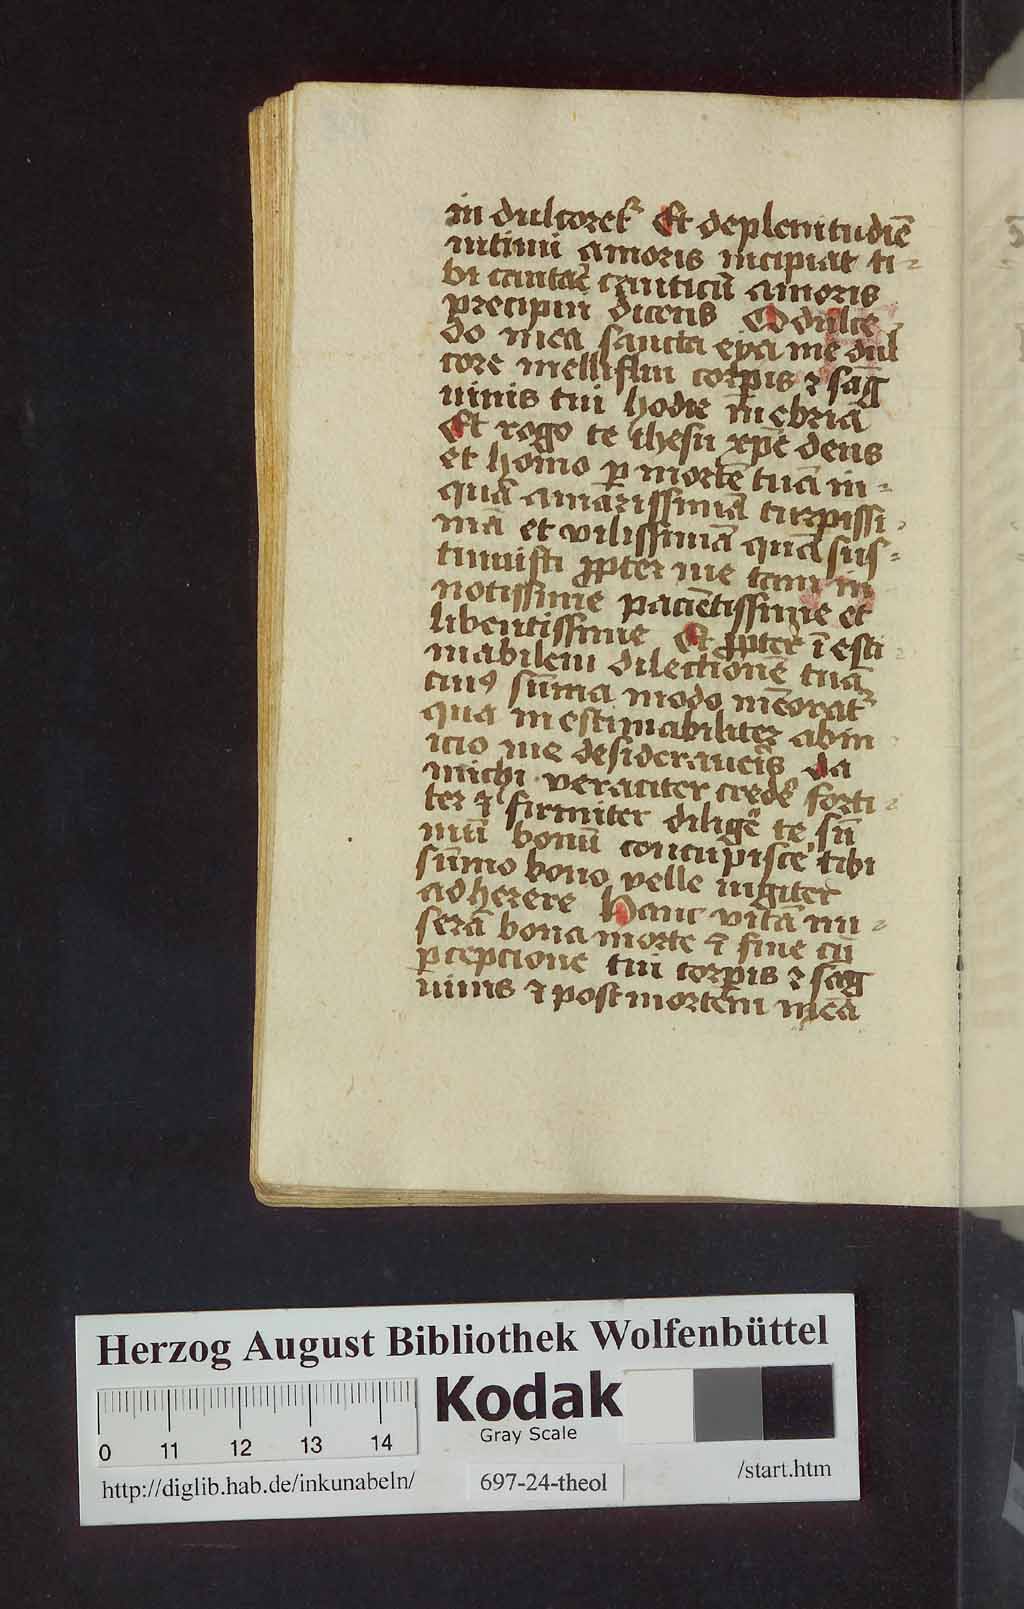 in dulcoret᷑ Et deplenitudiē
intimi amoris incipiat ti-
bi cantar̄ canticū amoris
precipiu dicens O dulce
do mea sancta eya me dul
core melliflui corp̄is ⁊ sāg
uinis tui hodie inebriā
Et rogo te ihesu xp̄e deus
et homo ꝑ mortē tuā in-
quā amarissimā turpissi-
mā et vilissimā quā sus-
tinuisti ꝓpter me tam in
notissime paciētissime et
libentissime Et ꝓpter īesti-
mabilem dilectionē tuā
cuiꝰ sūma modo mēorat᷑
qua inestimabiliter abin
icio me desideraueīs da
michi veraciter credē forti-
ter ⁊ firmiter diligē te sū
mū bonū concupiscē tibi
sūmo bono velle iugiter
adherere Hanc vitā mi-
serā bona morte ⁊ fine cū
ꝑcepcione tui corp̄is ⁊ sāg
uinis ⁊ post mortem meā
Herzog August Bibliothek Wolfenbüttel
0 11 12 13 14
Kodak
Gray Scale
http://diglib.hab.de/inkunabeln/
697-24-theol
/start.htm